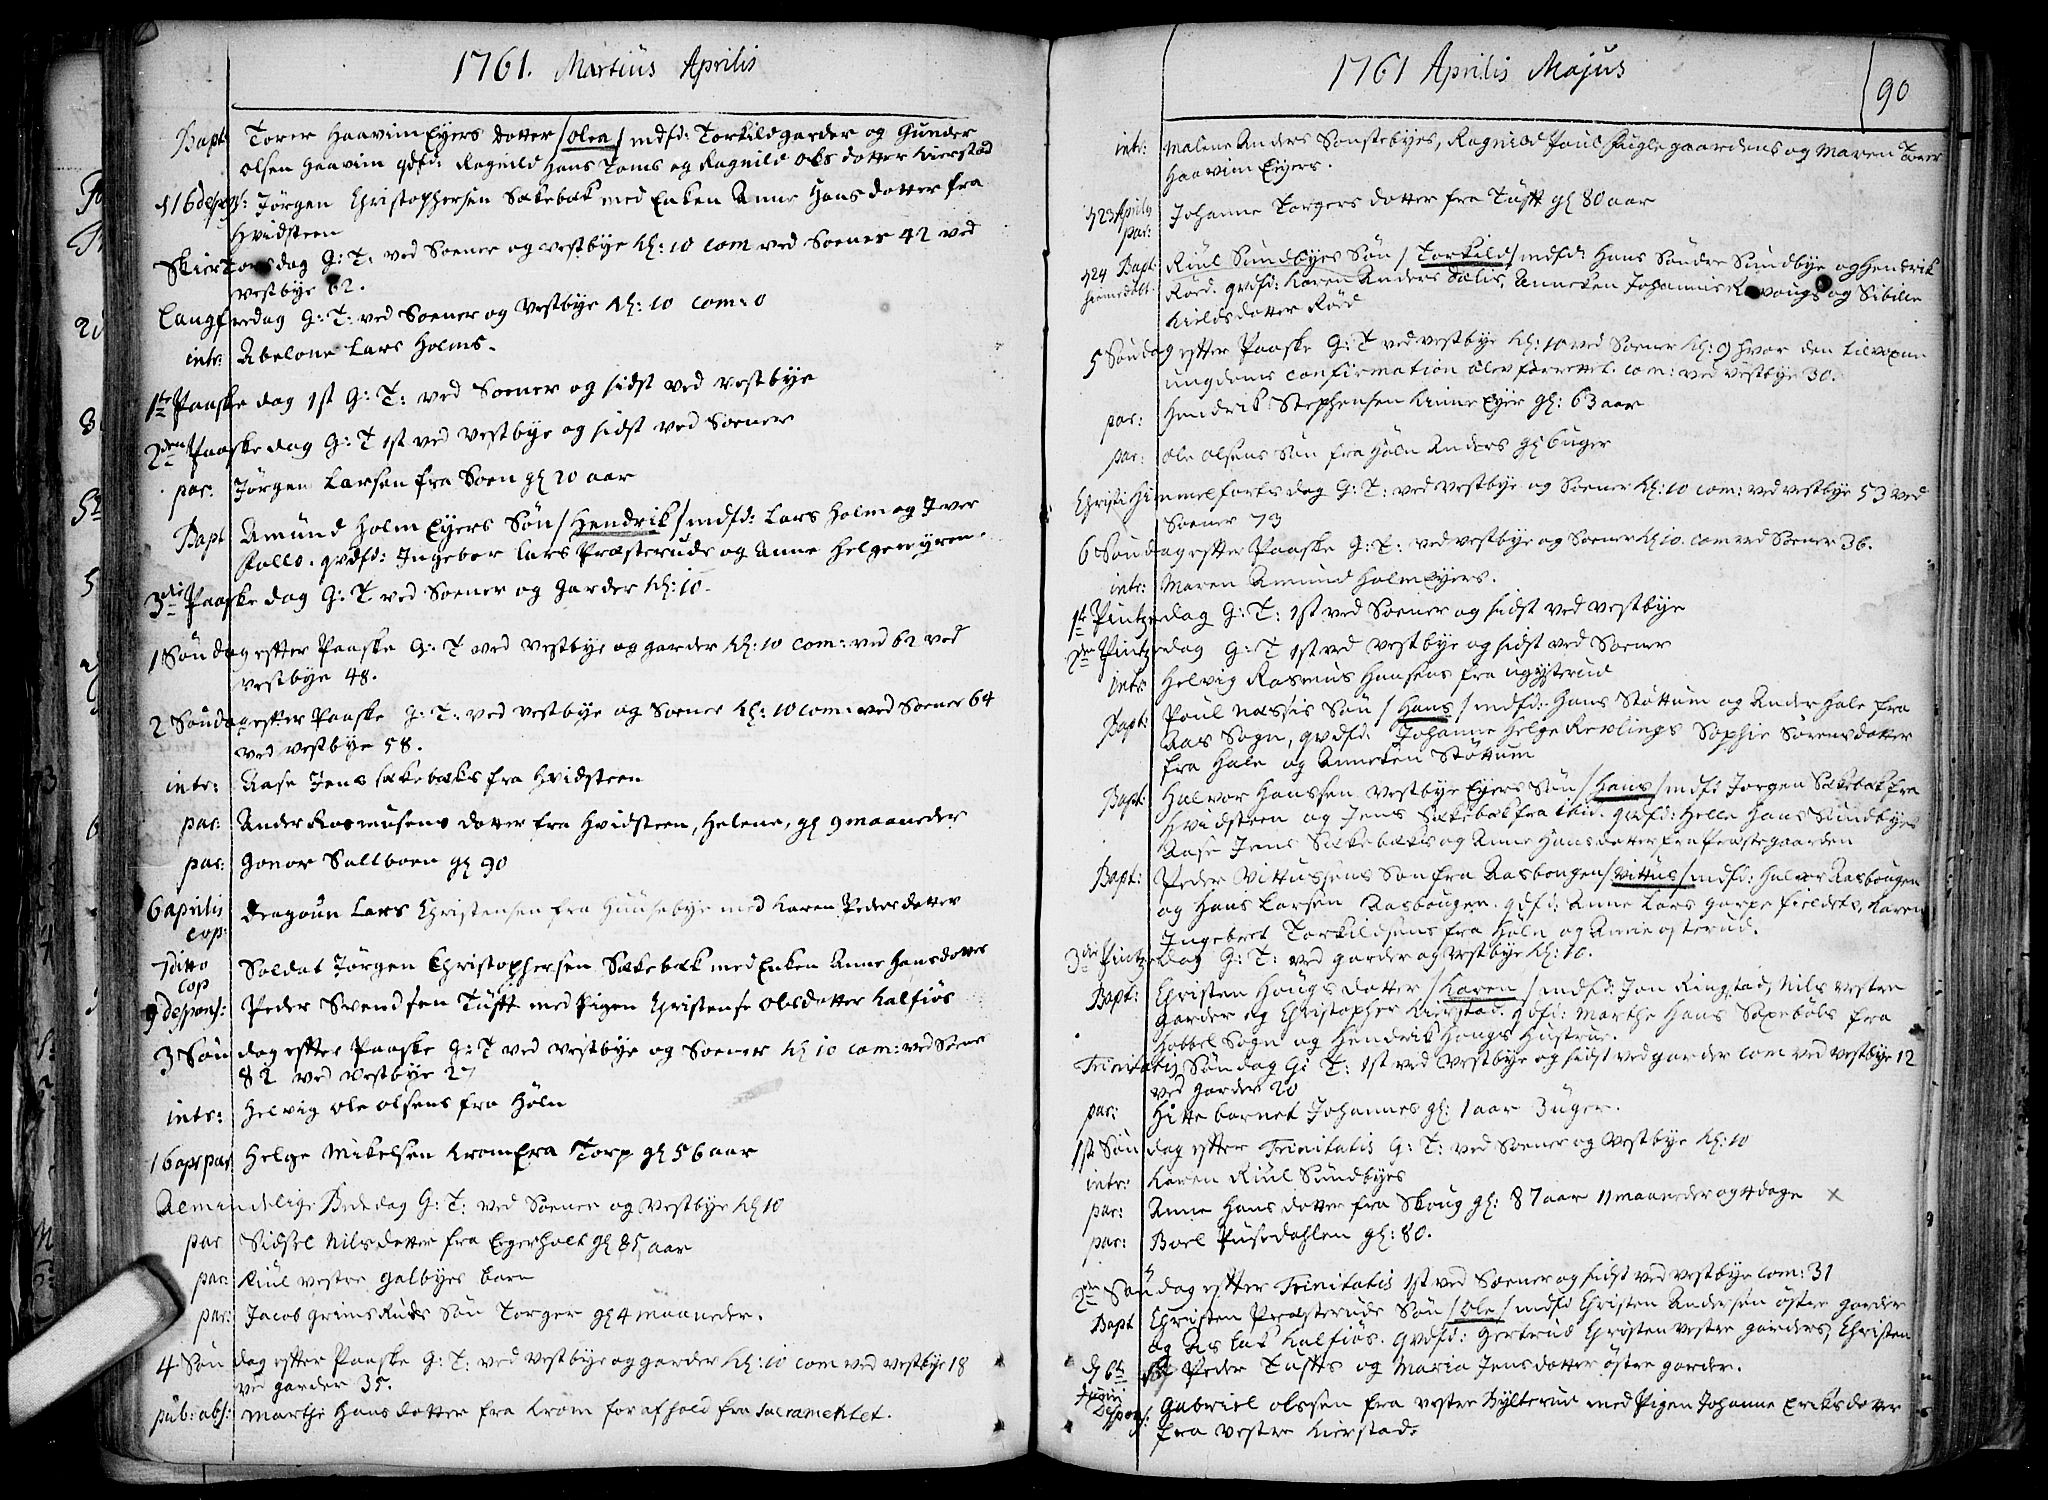 1761. Martius Aprilis
Bapt: Torer Haavim Eyers dotter /Olea/ mdfd: Torkild garder og Gunder
Olsen Haavim qdfd: Ragnild Hans Toms og Ragnild Ols dotter Kierstad
d 16 despons: Jørgen Christophersen Sækebæk med Enken Anne Hans dotter fra
Hvidsteen
Skiertorsdag G: T: ved Soener og vestbye Kl: 10 com ved Soener 42 ved
vestbye 62.
Langfredag G: T: ved Soener og Vestbye Kl: 10 com: 0
intr: Abelone Lars Holms.
1ste Paaske dag 1st G: T: ved Soener og sidst ved vestbye
2den Paaske dag G: T 1st ved vestbye og sidst ved Soener
par: Jørgen Larsen fra Soen gl 20 aar
Bapt Amund Holm Eyers Søn /Hendrik/ mdfd: Lars Holm og Iver
Follo. qvdfd: Ingebor Lars Præsteruds og Anne Helgenyren.
3die Paaske dag G: T ved Soener og Garder Kl: 10.
1 Søndag effter Paaske G: T ved vestbye og garder Kl: 10 com: ved 62 ved
vestbye 48.
2 Søndag effter Paaske G: T: ved vestbye og Soener Kl: 10 com: ved Soener 64
ved vestbye 58.
intr: Aase Jens Sækebæks fra Hvidsteen
par: Ander Rasmusens dotter fra Hvidsteen, Helene, gl 9 maaneder
par: Gonor Sallboen gl 90
6 aprilis cop: Dragoun Lars Christensen fra Huusebye med Karen Peders dotter
7 ditto cop Soldat Jørgen Christophersen Sækebæk med Enken Anne Hansdotter
9 despons: Peder Svendsen Tufft med Pigen Christense Olsdotter Kalfiøs
3 Søndag effter Paaske G: T ved vestbye og Soener Kl 10 com: ved Soener
82 ved vestbye 27
intr: Helvig Ole Olsens fra Høln
16 apr par Helge Mikelsen Krom fra Torp gl 56 aar
Almindelige Bededag G: T: ved Soener og vestbye Kl 10
par Sidsel Nilsdotter fra Egerholt gl 85 aar
par: Riul vestre Galbyes barn
par: Jacob Grimsruds Søn Torger gl 4 maaneder.
4 Søndag effter Paaske G: T: ved vestbye og garder Kl: 10 com ved vestbye 18
ved garder 35.
pub: abs: Marthe Hansdotter fra Krom for afhold fra Sacramentet.
1761 Aprilis Majus
90
intr: Malene Anders Sønstebyes, Ragnild Poul Fuglegaardens og Maren Torer
Haavim Eyers.
d 23 Aprily par: Johanne Torgers dotter fra Tufft gl 80 aar
d 24 Bapt: Riul Sundbyes Søn /Torkild/ mdfd: Hans Søndre Sundbye og Hendrik
hiemedøbt. Røed. qvdfd: Karen Anders Dælis, Anneken Johannis Krvougs og Sibille
Kieldsdotter Rød
5 Søndag effter Paaske G: T ved vestbye Kl: 10 ved Soener Kl: 9 hvor den tilvoxne
ungdoms confirmation blev forrettet. com: ved vestbye 30.
par: Hendrik Stephensen Kinne Eyer gl: 63 aar
par: Ole Olsens Søn fra Høln Anders gl 6 uger
Christi Himmelfarts dag G: T: ved vestbye og Soener Kl: 10 com: ved vestbye 53 ved
Soener 73
6 Søndag effter Paaske G: T: ved vestbye og Soener Kl 10. com ved Soener 36.
intr: Maren Amund Holm Eyers.
1st Pintzedag G: T: 1st ved Soener og sidst ved vestbye
2den Pintzedag G: T 1st ved vestbye og sidst ved Soener
intr Helvig Rasmus Hansens fra
Bapt: Poul Næssis Søn /Hans/ mdfd: Hans Støttum og Ander Hole fra
Aas Sogn, qvdfd: Johanne Helge Revlings Sophie Sørensdotter
fra Hole og Anneken Støttum
Bapt: Halvor Hanssen vestbye Eyers Søn /Hans/ mdfd Jørgen Sækebæk fra
Hvidsteen og Jens Sækebæk fra ibid. qvdfd: Helle Hans Sundbyes
Aase Jens Sækebæks og Anne Hansdotter fra Præstegaarden
Bapt: Peder Vittussens Søn fra Aasbongen /Vittus/ mdfd: Halvor Aasbongen
og Hans Larsen Aasbongen. qdfd: Anne Lars Garpefieldets, Karen
Ingebret Torkildsens fra Høln og Anne Osterud.
3die Pintzedag G: T: ved garder og vestbye Kl: 10.
Bapt: Christen Hougs dotter /Karen/ mdfd: Jon Ringstad, Nils vestre
Garder og Christopher Kierstad. qdfd: Marthe Hans Sæxebøls fra
Hobbel Sogn og Hendrik Hougs Hustrue.
Trinitatis Søndag G: T: 1st ved vestbye og sidst ved garder com ved vestbye 12
ved garder 20
par: Hittebarnet Johannes gl: 1 aar 3 uger.
1st Søndag effter Trinitatis G: T: ved Soener og vestbye Kl: 10
intr: Karen Riul Sundbyes
par: Anne Hansdotter fra Skoug gl: 87 aar 11 maaneder og 4 dage x
par: Boel Pusedahlen gl: 80.
2den Søndag effter Trinitatis 1st ved Soener og sidst ved vestbye com: 31
Bapt Christen Præsteruds Søn /Ole/ mdfd Christen Andersen østre garder
og Aslak Kalfiøs. qvdfd: Gertrud Christen vestre garders, Christen
Peder Tuffts og Maria Jensdotter østre garder.
d 6te Junij Despons: Gabriel Olssen fra vestre Hylterud med Pigen Johanne Eriksdotter
fra vestre Kierstad.